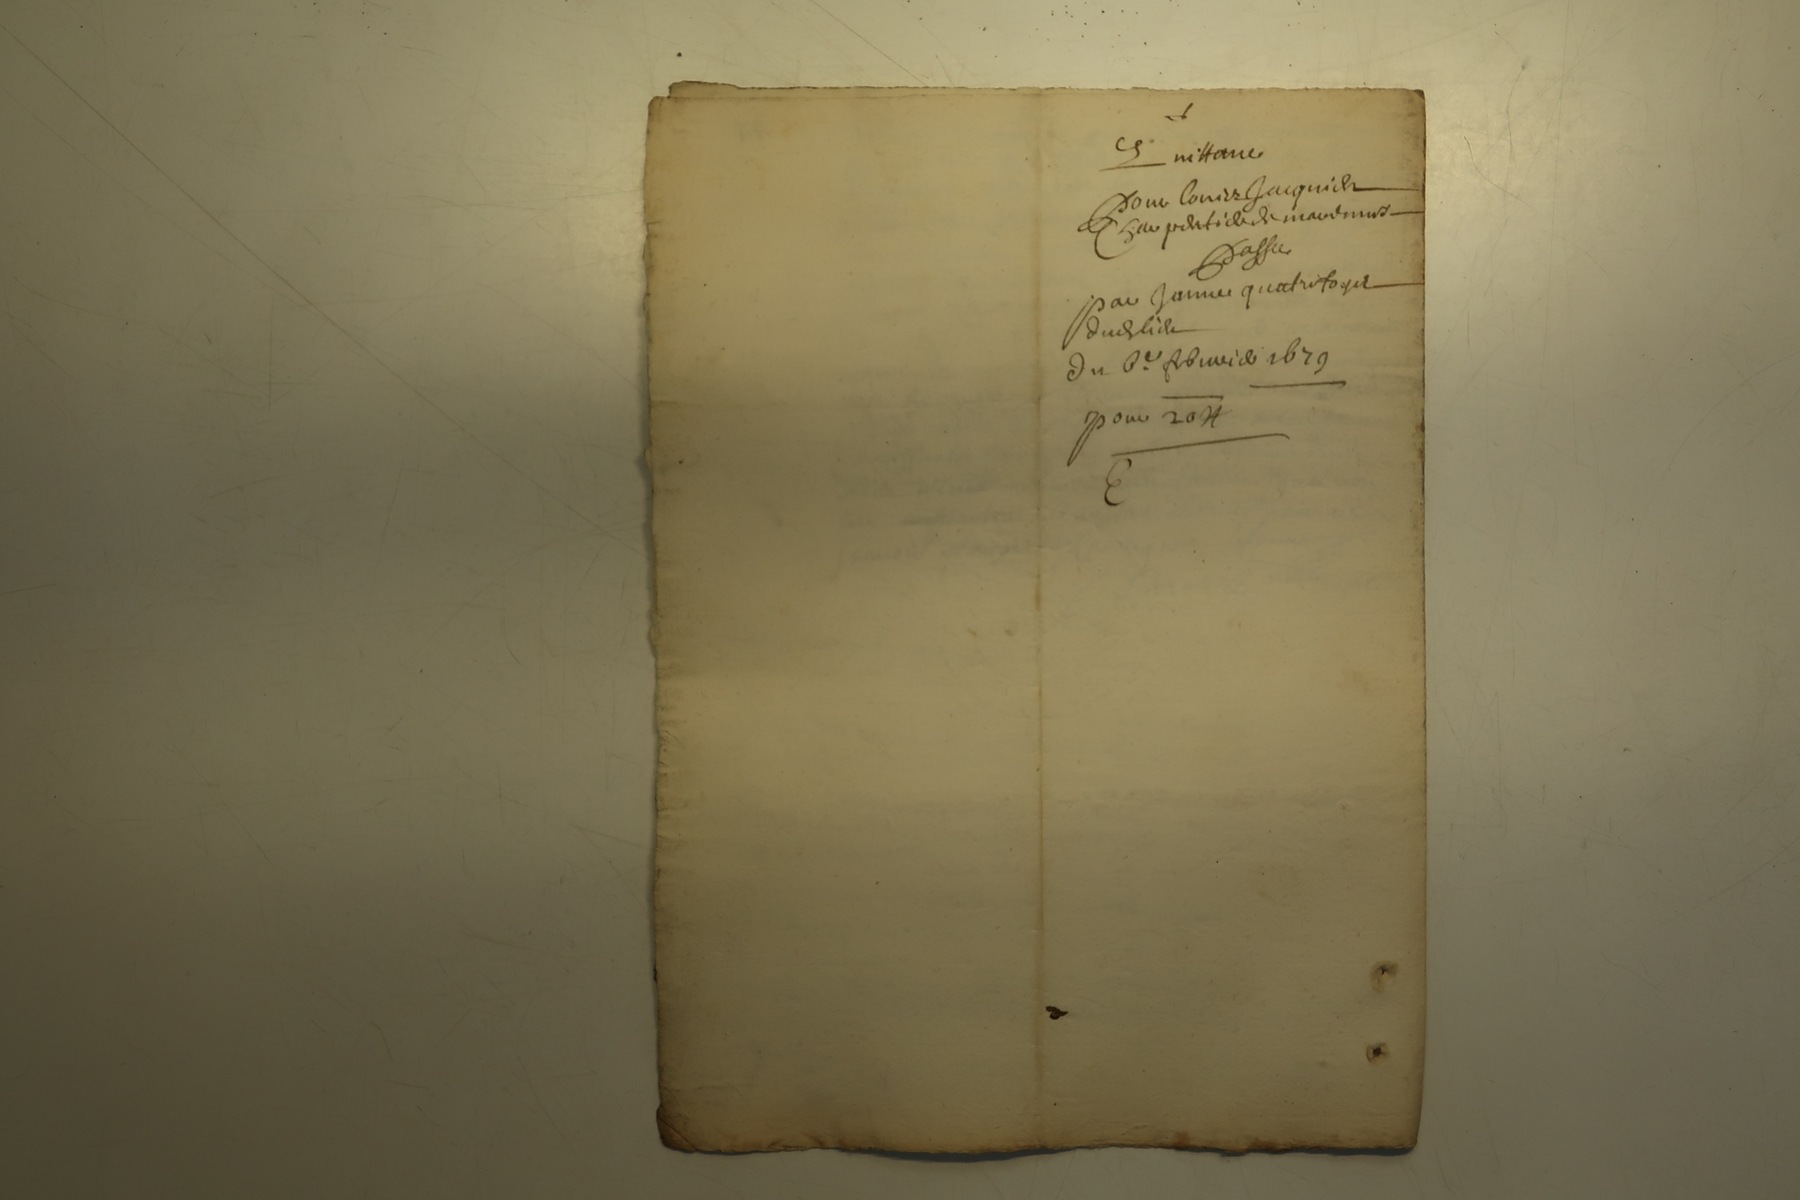 Quittance
pour Louis Jacquier
charpentier de
passée
par Janne quatrefoges
dudit lieu
du 6e febvrier 1679
pour 20 ₶